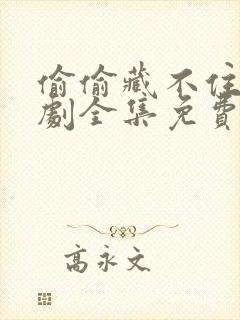 偷偷藏不住
劇全集免費
高永文